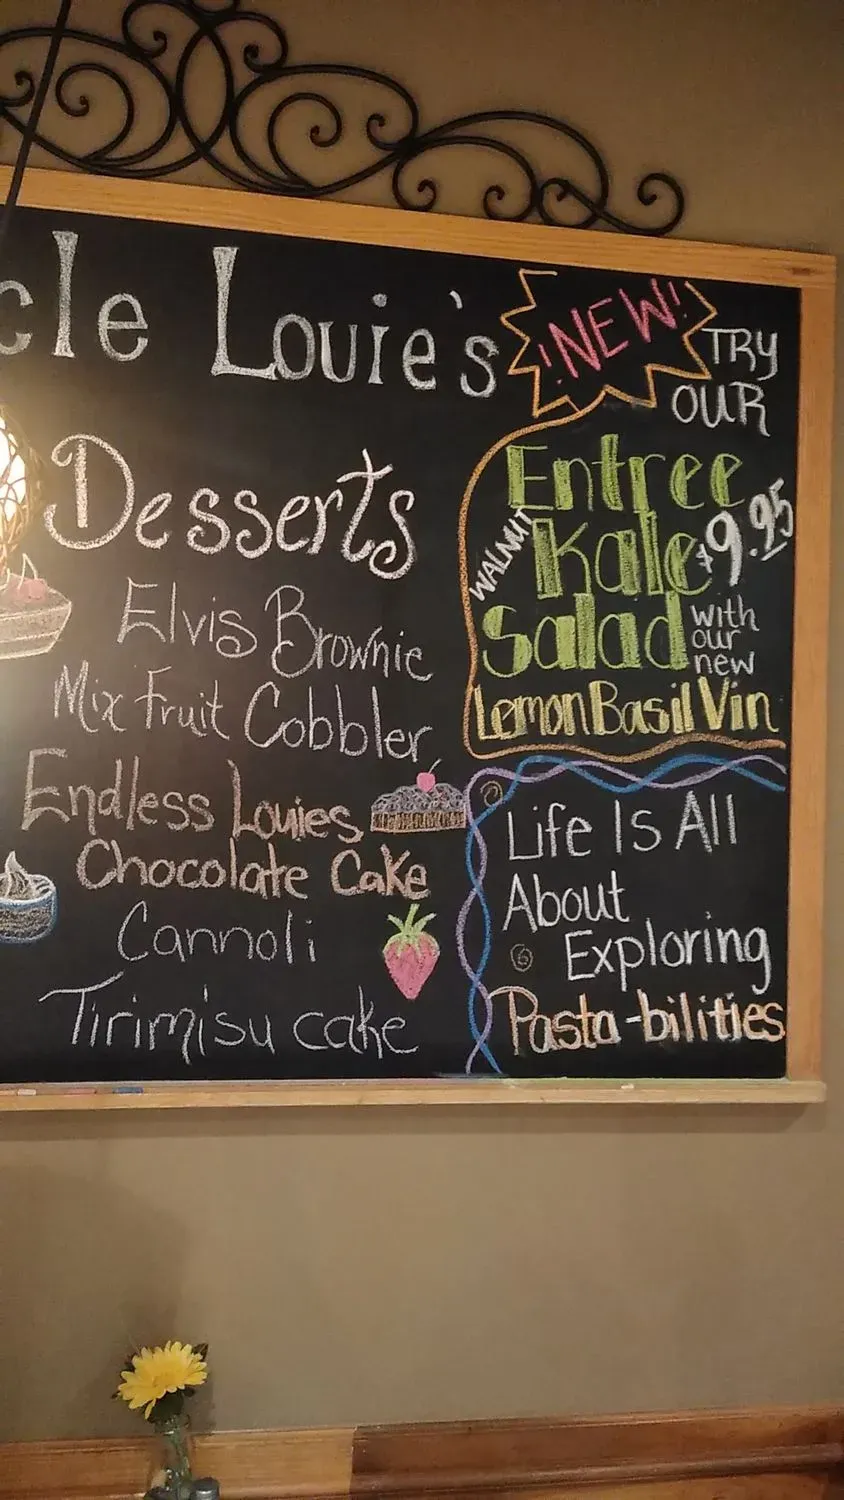 cle Louie's
Desserts
Elvis Brownie
Mix Fruit Cobbler
Endless Louies
Chocolate Cake
Cannoli
Tirimisu cake
!NEW!
TRY
OUR
Entree
WALNUT Kale $9.95
Salad with
our
new
Lemon Basil Vin
Life Is All
About
Exploring
Pasta-bilities